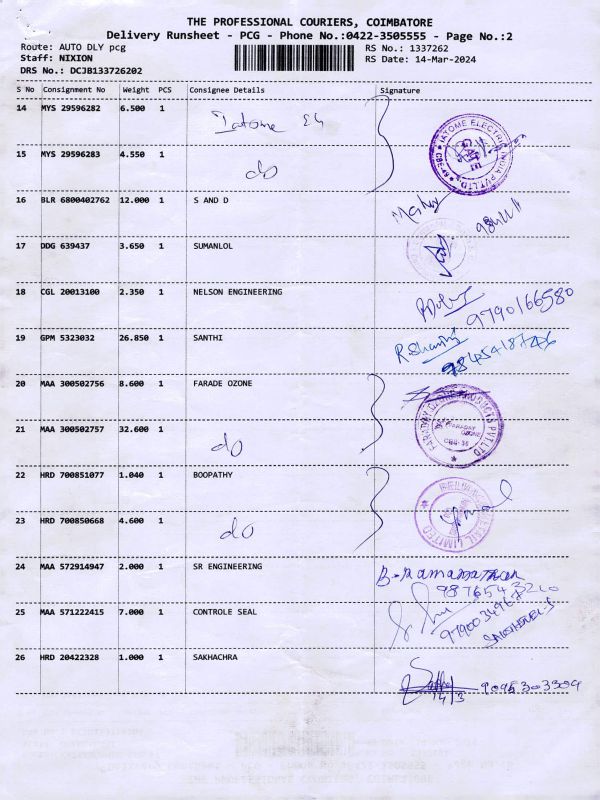 THE PROFESSIONAL COURIERS, COIMBATORE
Delivery Runsheet - PCG - Phone No.:0422-3505555 - Page No.:2
Route: AUTO DLY pcg RS No.: 1337262
Staff: NIXION RS Date: 14-Mar-2024
DRS No.: DCJB133726202
S No Consignment No Weight PCS Consignee Details Signature
14 MYS 29596282 6.500 1 Iatome
15 MYS 29596283 4.550 1 do
16 BLR 6800402762 12.000 1 S AND D
17 DDG 639437 3.650 1 SUMANLOL
18 CGL 20013100 2.350 1 NELSON ENGINEERING 9790166580
19 GPM 5323032 26.850 1 SANTHI
20 MAA 300502756 8.600 1 FARADE OZONE
21 MAA 300502757 32.600 1 do
22 HRD 700851077 1.040 1 BOOPATHY
23 HRD 700850668 4.600 1 do
24 MAA 572914947 2.000 1 SR ENGINEERING
25 MAA 571222415 7.000 1 CONTROLE SEAL
26 HRD 20422328 1.000 1 SAKHACHRA
14/3